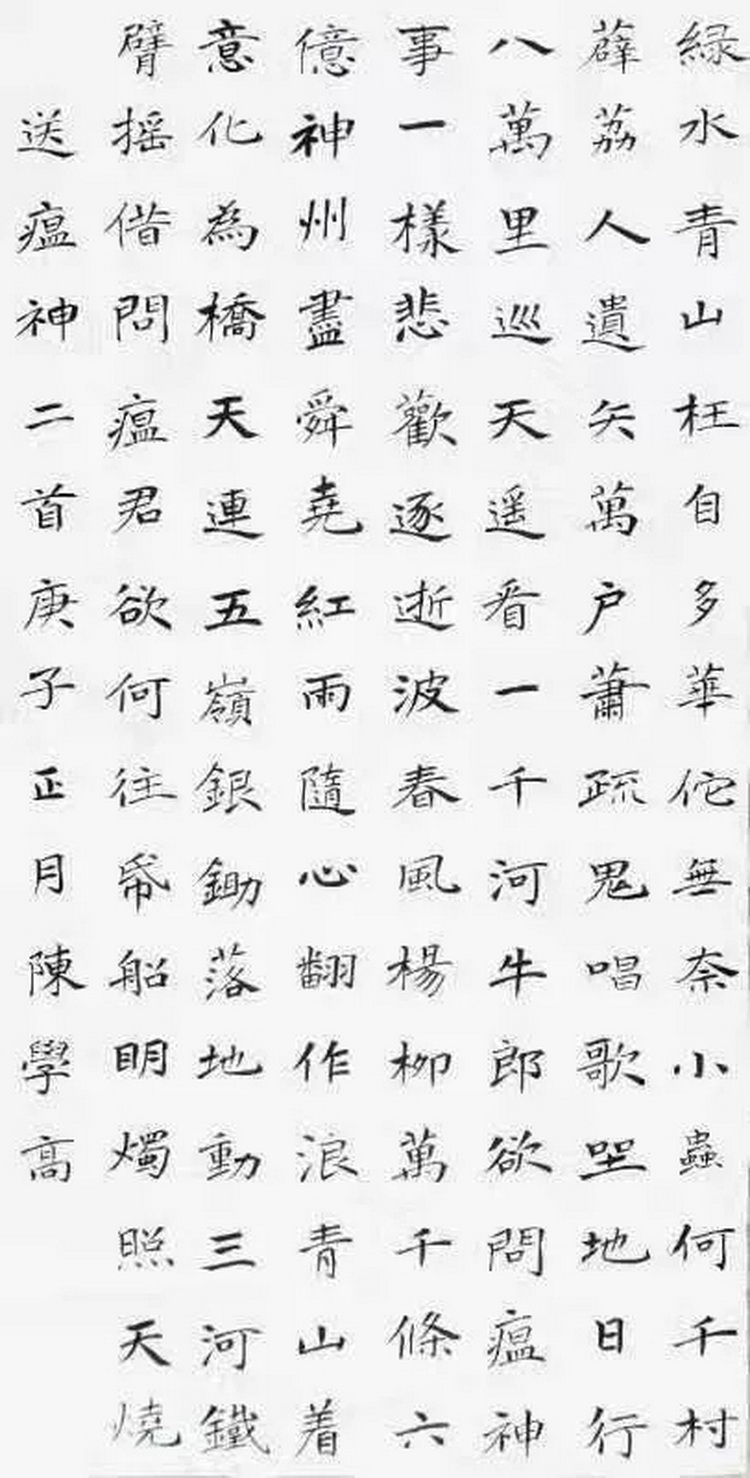 緑水青山枉自多華佗無奈小蟲何千村
薜荔人遺矢萬户蕭疏鬼唱歌坐地日行
八萬里巡天遥看一千河牛郎欲問瘟神
事一樣悲歡逐逝波春風楊柳萬千條六
億神州盡舜堯紅雨隨心翻作浪青山着
意化為橋天連五嶺銀鋤落地動三河鐵
臂摇借問瘟君欲何往帋船明燭照天燒
送瘟神二首庚子正月陳學高